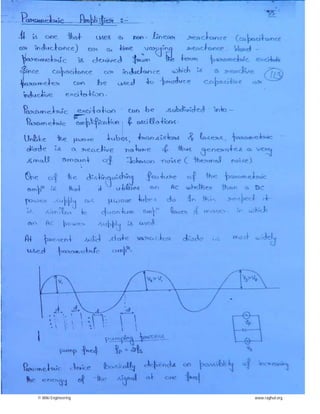 Parametric Amplifier :-
It is one that uses a non-linear reactance (capacitance
or inductance) or a time varying reactance. Word -
parametric is derived from the term parametric excitation
since capacitance or inductance which is a reactive
parameter can be used to produce capacitive or
inductive excitation.
Parametric excitation can be subdivided into -
Parametric amplification & oscillations.
Unlike the μwave tubes, transistors & lasers, parametric
diode is a reactive nature & thus generates a very
small amount of Johnson noise (thermal noise)
One of the distinguishing feature of the parametric
ampr is that it utilizes an AC whether than a DC
power supply as μwave tubes do. In this respect it
is similar to quantum ampr lasers & maser in which
an AC power supply is used
At present solid state varactor diode is most widely
used parametric ampr.
pumping process
pump freq fp = 2fs
Parametric device basically depends on possibility of increasing
the energy of the signal at one freq
© Wiki Engineering
www.raghul.org